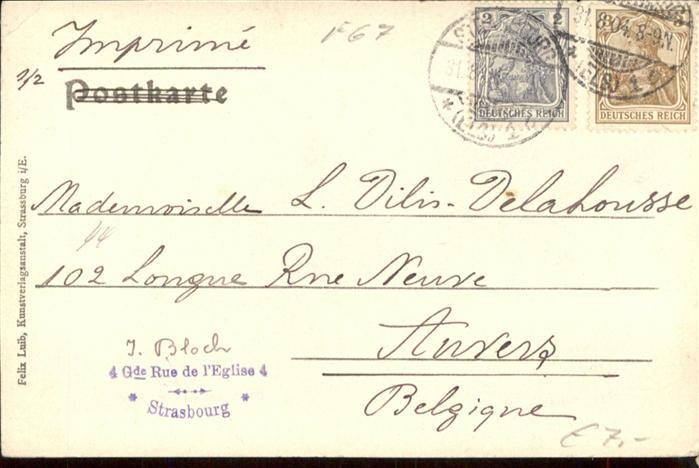 Imprimé
F67
1/2
Postkarte
2 2
DEUTSCHES REICH
3
DEUTSCHES REICH
31.8.04. 8-9N.
* (ELS) 1 c
Mademoiselle L. Dilis-Delahousse
102 Longue Rue Neuve
Anvers
Belgique
J. Bloch
4 Gde Rue de l'Eglise 4
* Strasbourg *
Felix Luib, Kunstverlagsanstalt, Strassburg i/E.
€ 7,-